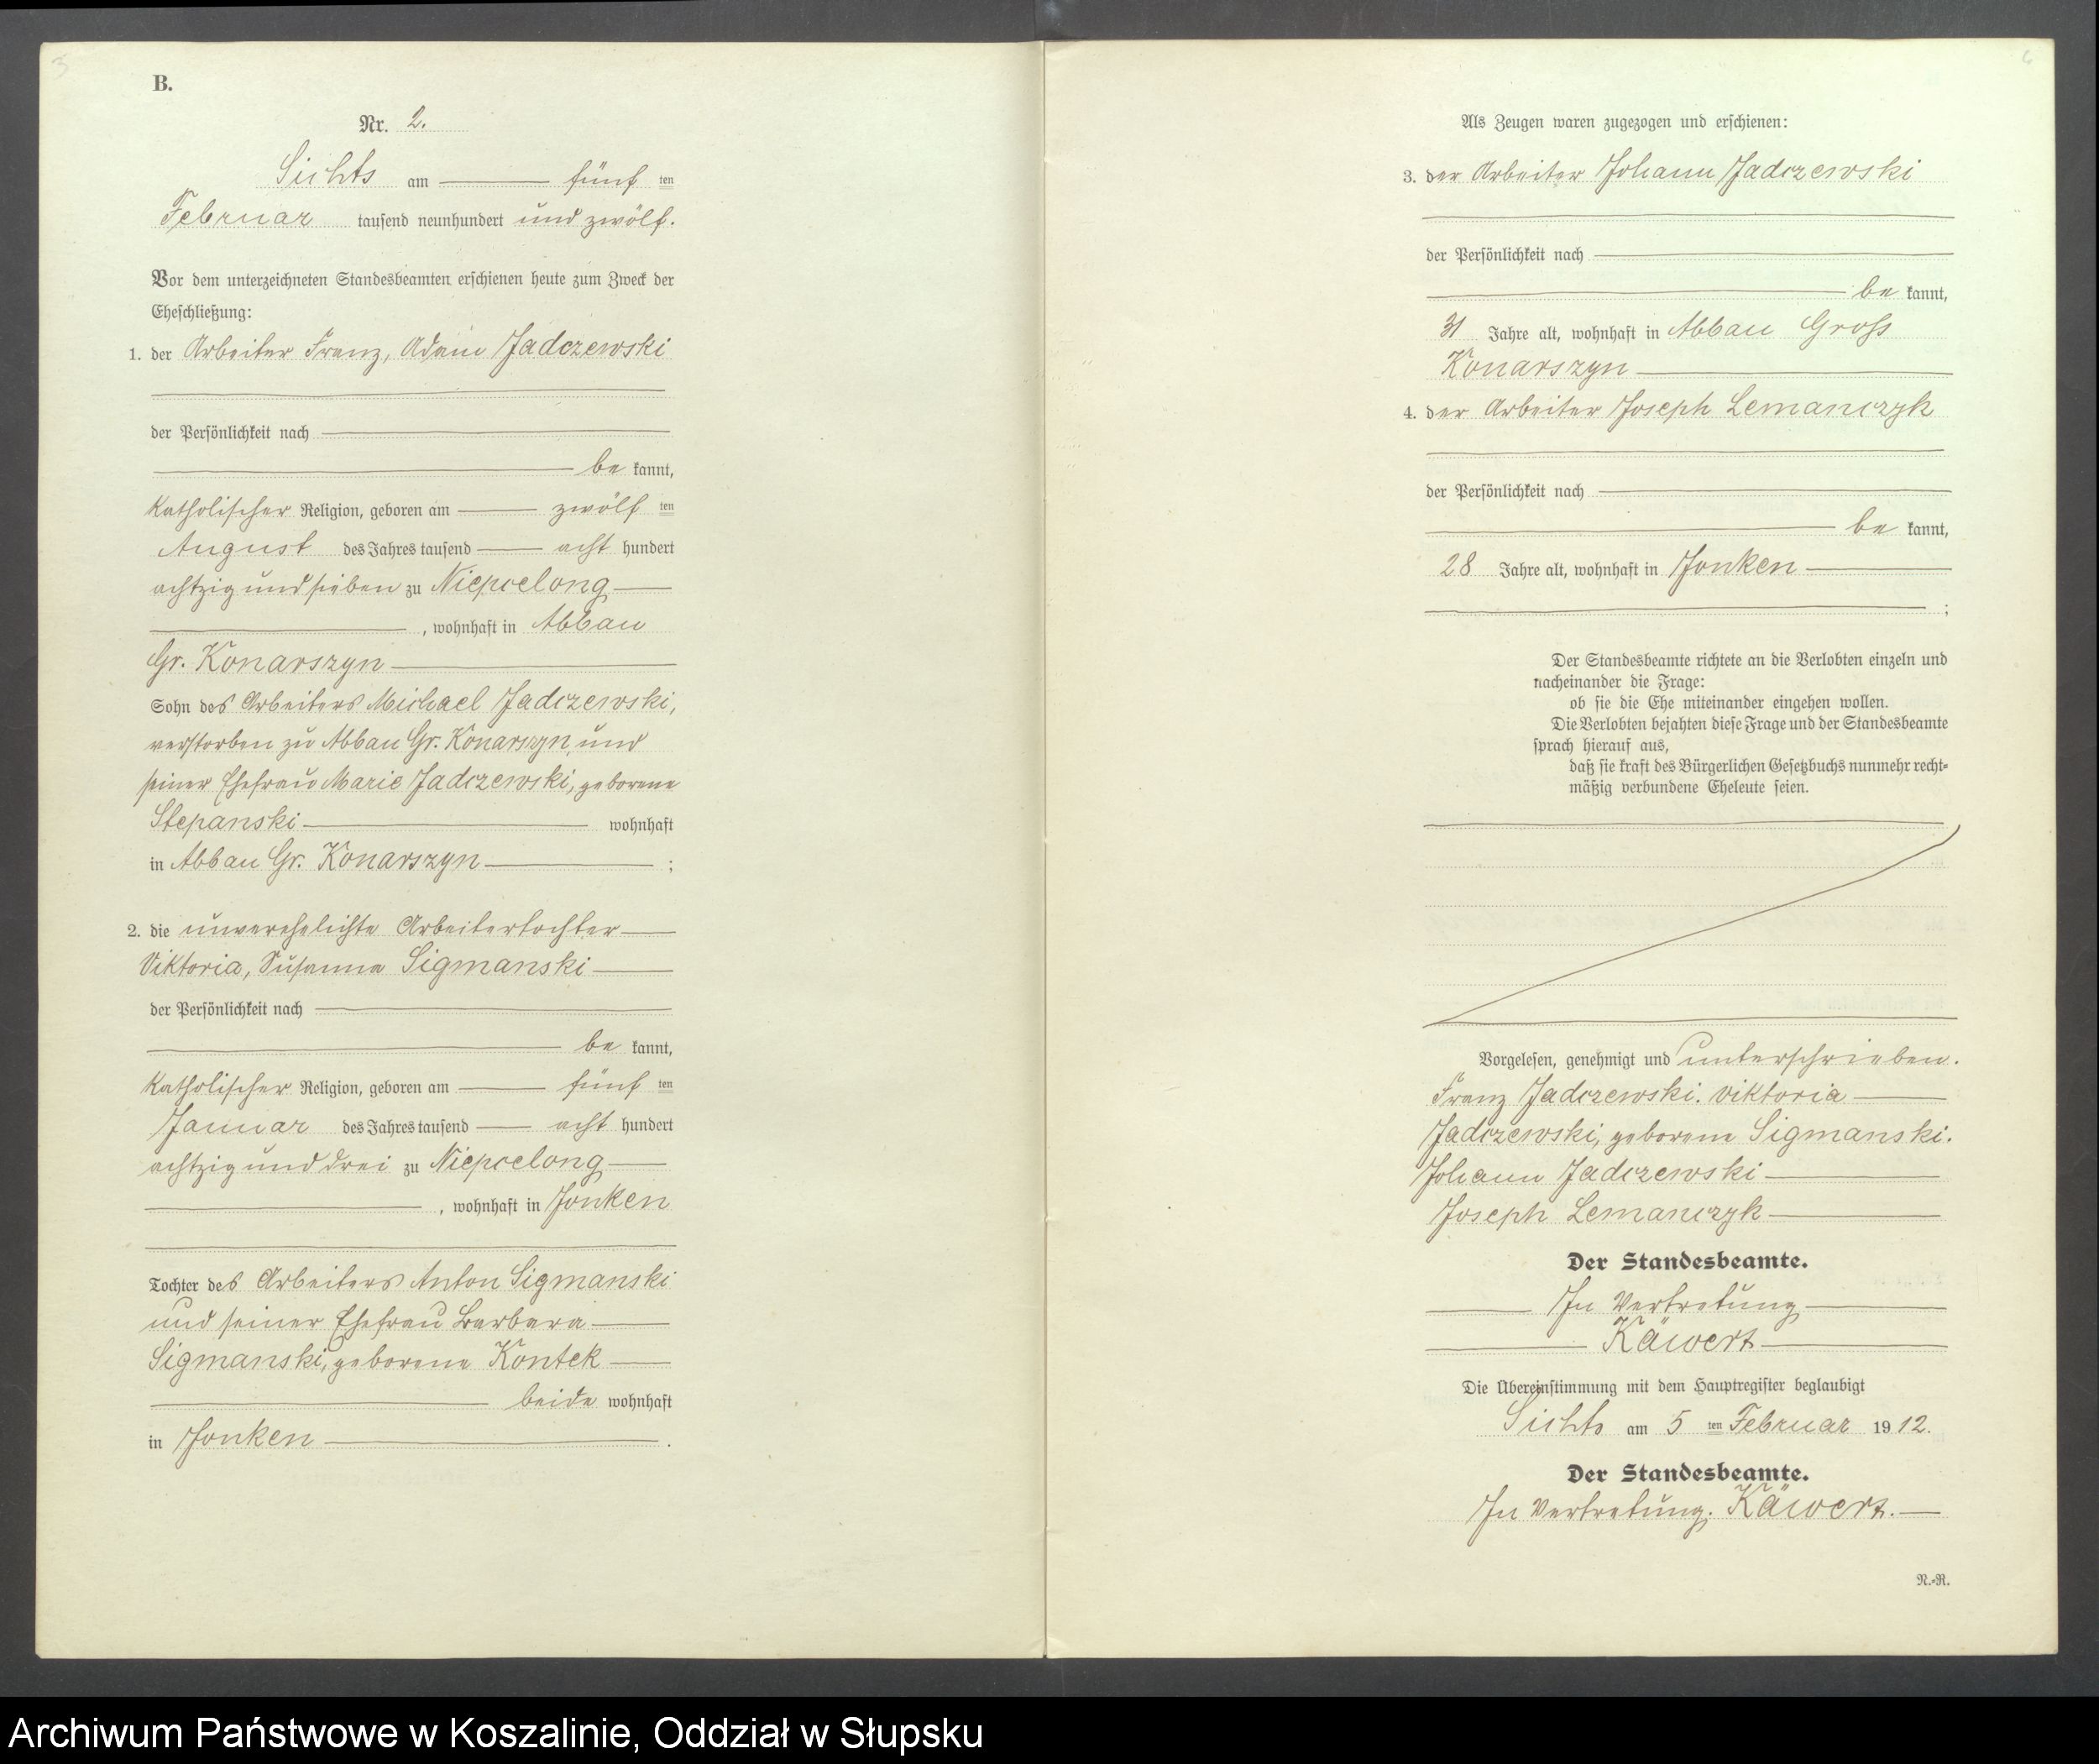 3
B.
Nr. 2.
Sichts am fünf ten
Februar tausend neunhundert und zwölf.
Vor dem unterzeichneten Standesbeamten erschienen heute zum Zweck der
Eheschließung:
1. der Arbeiter Franz, Adam Jadczewski
der Persönlichkeit nach
be kannt,
katholischer Religion, geboren am zwölf ten
August des Jahres tausend acht hundert
achtzig und sieben zu Niepcelong
, wohnhaft in Abbau
Gr. Konarszyn
Sohn des Arbeiters Michael Jadczewski,
verstorben zu Abbau Gr. Konarszyn, und
seiner Ehefrau Marie Jadczewski, geborene
Stepanski wohnhaft
in Abbau Gr. Konarszyn ;
2. die unverehelichte Arbeitertochter
Viktoria, Susanna Sigmanski
der Persönlichkeit nach
be kannt,
katholischer Religion, geboren am fünf ten
Januar des Jahres tausend acht hundert
achtzig und drei zu Niepcelong
, wohnhaft in Jonken
Tochter des Arbeiters Anton Sigmanski
und seiner Ehefrau Barbara
Sigmanski, geborene Kontek
beide wohnhaft
in Jonken .
6
Als Zeugen waren zugezogen und erschienen:
3. der Arbeiter Johann Jadczewski
der Persönlichkeit nach
be kannt,
31 Jahre alt, wohnhaft in Abbau Gross
Konarszyn
4. der Arbeiter Joseph Lemanczyk
der Persönlichkeit nach
be kannt,
28 Jahre alt, wohnhaft in Jonken
;
Der Standesbeamte richtete an die Verlobten einzeln und
nacheinander die Frage:
ob sie die Ehe miteinander eingehen wollen.
Die Verlobten bejahten diese Frage und der Standesbeamte
sprach hierauf aus,
daß sie kraft des Bürgerlichen Gesetzbuchs nunmehr recht-
mäßig verbundene Eheleute seien.
Vorgelesen, genehmigt und unterschrieben.
Franz Jadczewski. Viktoria
Jadczewski, geborene Sigmanski.
Johann Jadczewski
Joseph Lemanczyk
Der Standesbeamte.
In Vertretung
Käwert
Die Übereinstimmung mit dem Hauptregister beglaubigt
Sichts am 5 ten Februar 1912.
Der Standesbeamte.
In Vertretung. Käwert.
N.-R.
Archiwum Państwowe w Koszalinie, Oddział w Słupsku